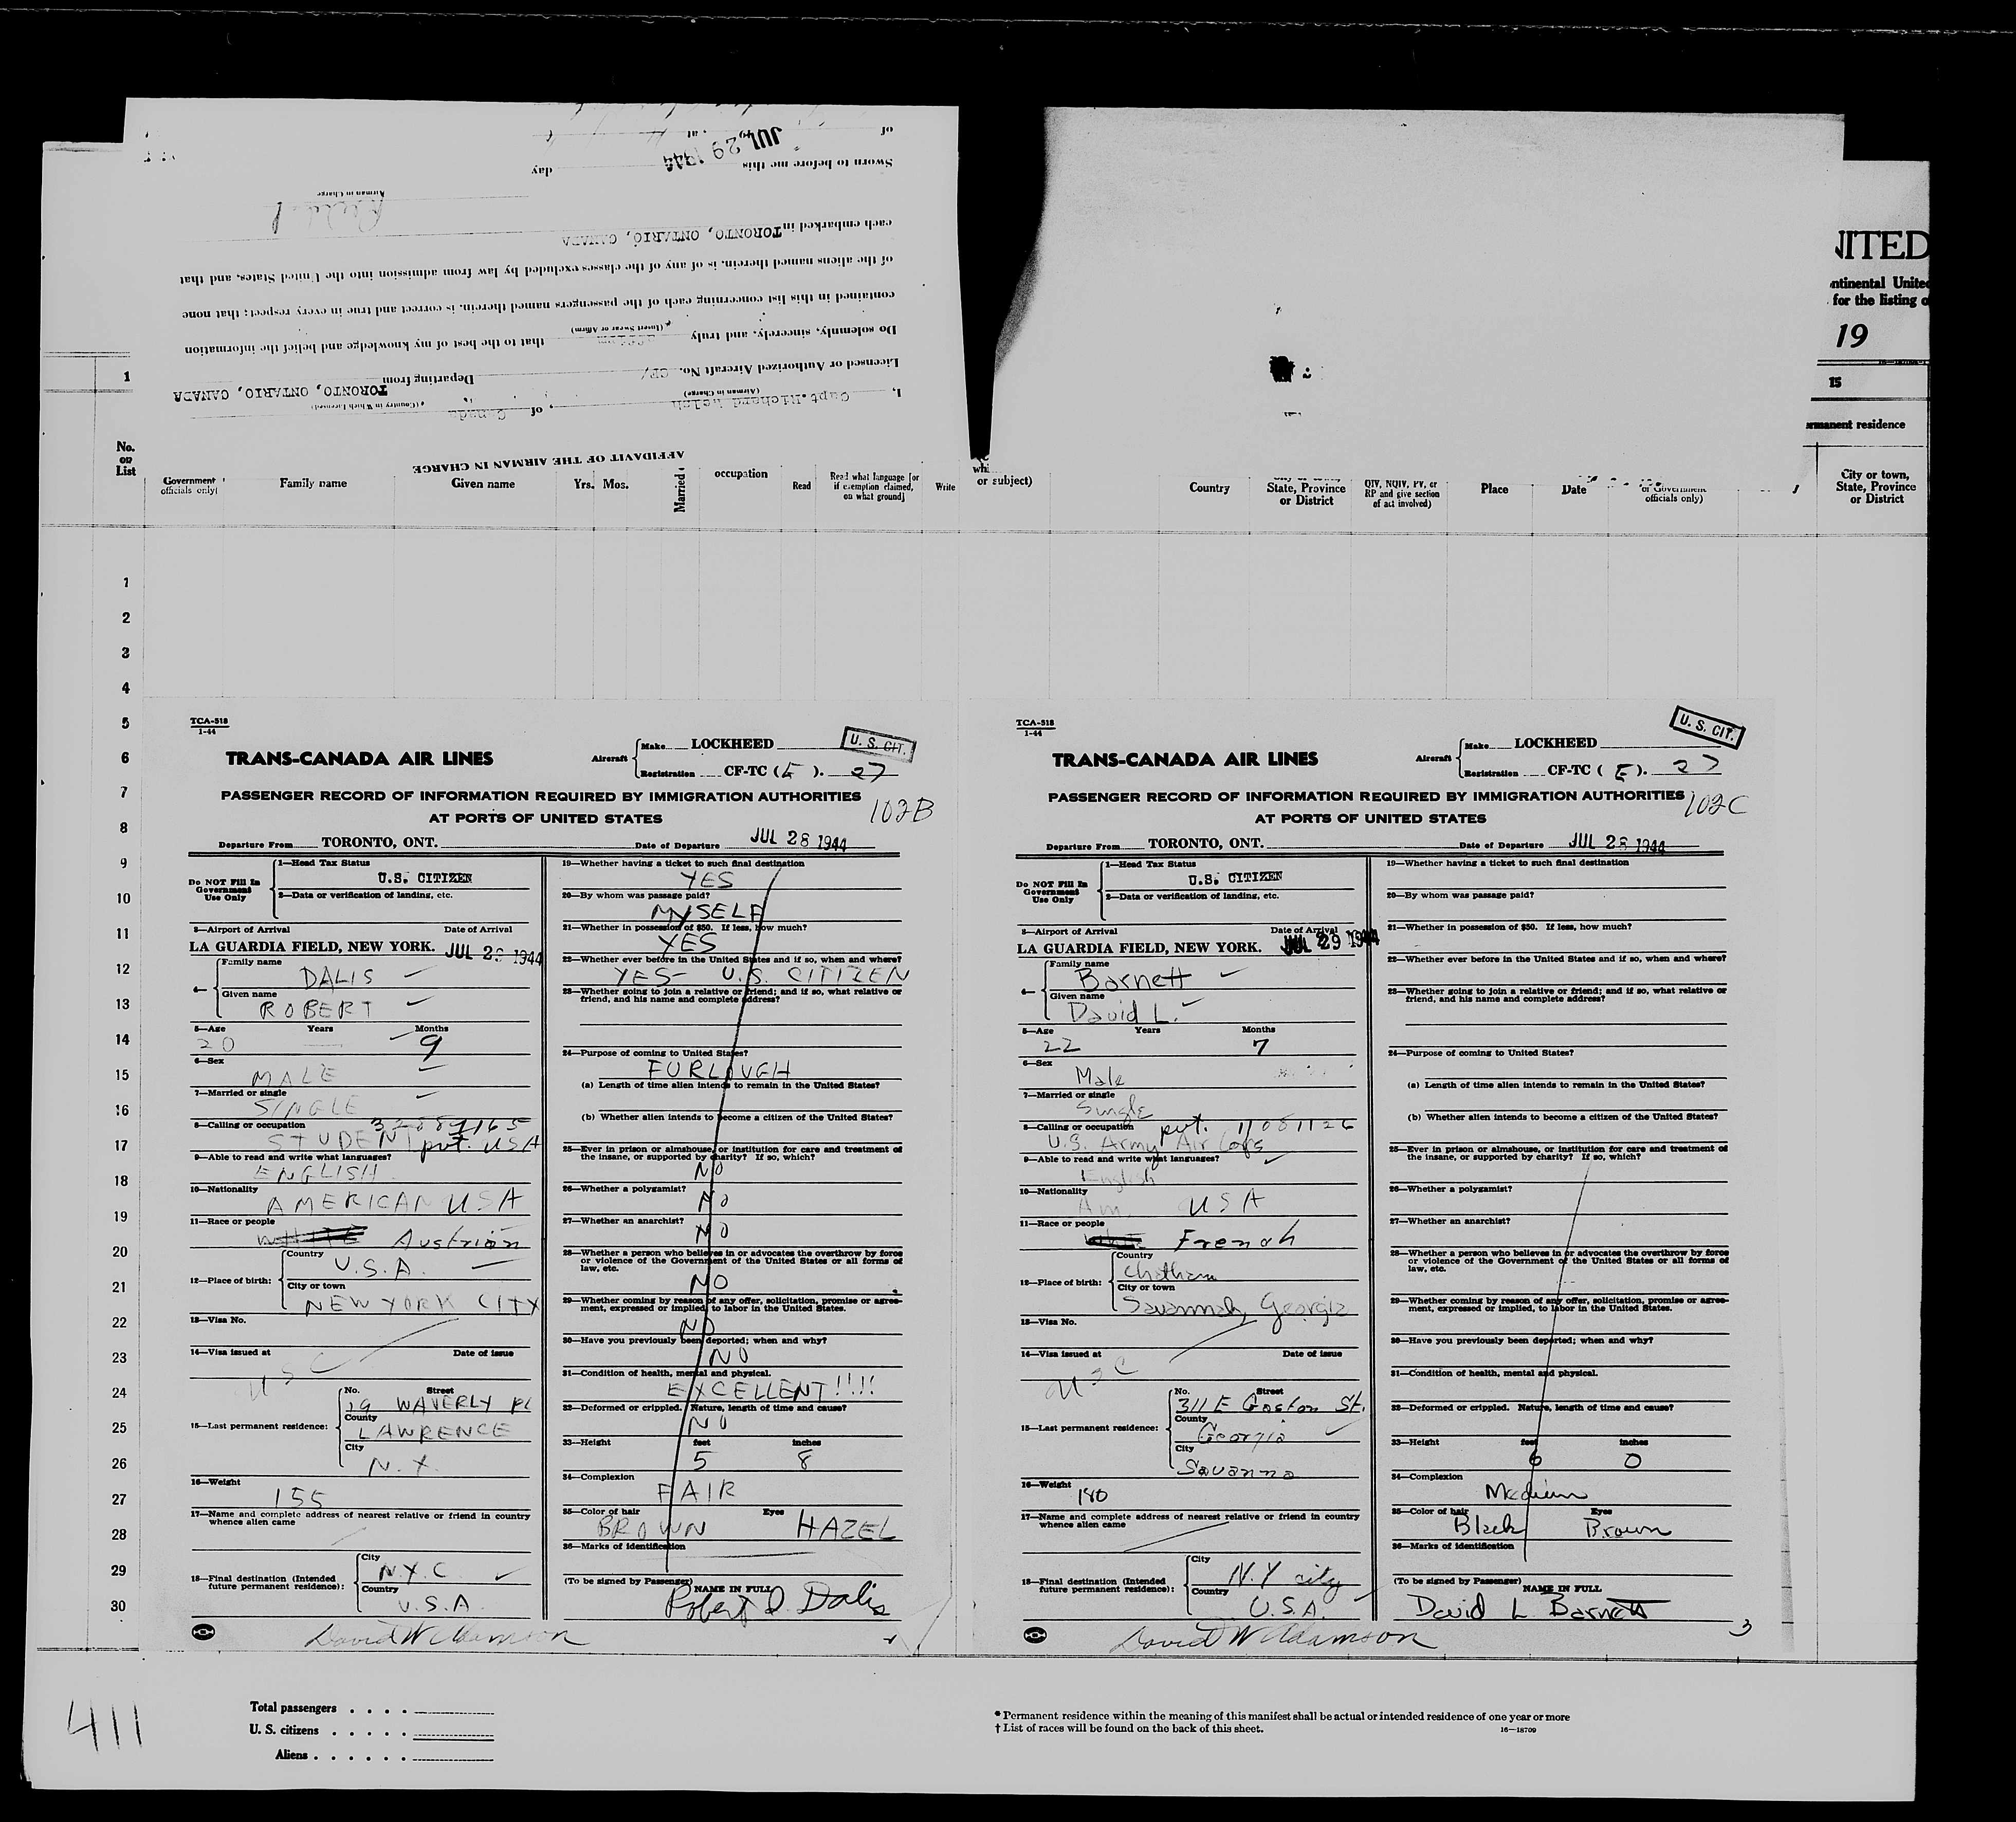 of JUL 29 1944 at
Sworn to before me this day
Airman in Charge
each embarked in TORONTO, ONTARIO, CANADA
of the aliens named therein, is of any of the classes excluded by law from admission into the United States, and that
contained in this list concerning each of the passengers named therein, is correct and true in every respect; that none
Do solemnly, sincerely, and truly that to the best of my knowledge and belief the information
(Insert Swear or Affirm)
Licensed or Authorized Aircraft No. CF/ Departing from TORONTO, ONTARIO, CANADA
(Airman in Charge) (Country in Which Licensed)
I, Capt. Richard Welsh of Canada
AFFIDAVIT OF THE AIRMAN IN CHARGE
NITED
ontinental United
for the listing o
19
15
ermanent residence
1
No. on List
Government officials only) Family name Given name Yrs. Mos. Married occupation Read Read what language [or if exemption claimed, on what ground] Write
or subject) Country State, Province or District QIV, NQIV, PV, or RP and give section of act involved) Place Date of Government officials only) City or town, State, Province or District
1
2
3
4
5
6
7
8
9
10
11
12
13
14
15
16
17
18
19
20
21
22
23
24
25
26
27
28
29
30
TCA-518
1-44
U. S. CIT.
TRANS-CANADA AIR LINES
Aircraft Make LOCKHEED
Registration CF-TC (E). 27
PASSENGER RECORD OF INFORMATION REQUIRED BY IMMIGRATION AUTHORITIES
102B
AT PORTS OF UNITED STATES
Departure From TORONTO, ONT. Date of Departure JUL 28 1944
Do NOT Fill In Government Use Only
1—Head Tax Status
U.S. CITIZEN
2—Data or verification of landing, etc.
3—Airport of Arrival Date of Arrival
LA GUARDIA FIELD, NEW YORK. JUL 28 1944
4— Family name
DALIS
Given name
ROBERT
5—Age Years Months
20 9
6—Sex
MALE
7—Married or single
SINGLE
8—Calling or occupation 32889165
STUDENT pvt. USA
9—Able to read and write what languages?
ENGLISH
10—Nationality
AMERICAN USA
11—Race or people
WHITE Austrian
12—Place of birth: Country
U.S.A.
City or town
NEW YORK CITY
13—Visa No.
14—Visa issued at Date of issue
USC
15—Last permanent residence: No. Street
19 WAVERLY PL
County
LAWRENCE
City
N.Y.
16—Weight
155
17—Name and complete address of nearest relative or friend in country whence alien came
18—Final destination (Intended future permanent residence): City
N.Y.C.
Country
U.S.A.
David W Adamson
19—Whether having a ticket to such final destination
YES
20—By whom was passage paid?
MYSELF
21—Whether in possession of $50. If less, how much?
YES
22—Whether ever before in the United States and if so, when and where?
YES- U.S. CITIZEN
23—Whether going to join a relative or friend; and if so, what relative or friend, and his name and complete address?
24—Purpose of coming to United States?
FURLOUGH
(a) Length of time alien intends to remain in the United States?
(b) Whether alien intends to become a citizen of the United States?
25—Ever in prison or almshouse, or institution for care and treatment of the insane, or supported by charity? If so, which?
NO
26—Whether a polygamist?
NO
27—Whether an anarchist?
NO
28—Whether a person who believes in or advocates the overthrow by force or violence of the Government of the United States or all forms of law, etc.
NO
29—Whether coming by reason of any offer, solicitation, promise or agreement, expressed or implied, to labor in the United States.
NO
30—Have you previously been deported; when and why?
NO
31—Condition of health, mental and physical.
EXCELLENT!!!!
32—Deformed or crippled. Nature, length of time and cause?
NO
33—Height feet inches
5 8
34—Complexion
FAIR
35—Color of hair Eyes
BROWN HAZEL
36—Marks of identification
(To be signed by Passenger) NAME IN FULL
Robert D. Dalis
TCA-518
1-44
U. S. CIT.
TRANS-CANADA AIR LINES
Aircraft Make LOCKHEED
Registration CF-TC (E). 27
PASSENGER RECORD OF INFORMATION REQUIRED BY IMMIGRATION AUTHORITIES
102C
AT PORTS OF UNITED STATES
Departure From TORONTO, ONT. Date of Departure JUL 28 1944
Do NOT Fill In Government Use Only
1—Head Tax Status
U.S. CITIZEN
2—Data or verification of landing, etc.
3—Airport of Arrival Date of Arrival
LA GUARDIA FIELD, NEW YORK. JUL 29 1944
4— Family name
Barnett
Given name
David L.
5—Age Years Months
22 7
6—Sex
Male
7—Married or single
Single
8—Calling or occupation pvt. 11081126
U.S. Army Air Corps
9—Able to read and write what languages?
English
10—Nationality
Am. USA
11—Race or people
White French
12—Place of birth: Country
Chatham
City or town
Savannah, Georgia
13—Visa No.
14—Visa issued at Date of issue
USC
15—Last permanent residence: No. Street
311 E Gaston St.
County
Georgia
City
Savanna
16—Weight
180
17—Name and complete address of nearest relative or friend in country whence alien came
18—Final destination (Intended future permanent residence): City
N.Y city
Country
U.S.A.
David W Adamson
19—Whether having a ticket to such final destination
20—By whom was passage paid?
21—Whether in possession of $50. If less, how much?
22—Whether ever before in the United States and if so, when and where?
23—Whether going to join a relative or friend; and if so, what relative or friend, and his name and complete address?
24—Purpose of coming to United States?
(a) Length of time alien intends to remain in the United States?
(b) Whether alien intends to become a citizen of the United States?
25—Ever in prison or almshouse, or institution for care and treatment of the insane, or supported by charity? If so, which?
26—Whether a polygamist?
27—Whether an anarchist?
28—Whether a person who believes in or advocates the overthrow by force or violence of the Government of the United States or all forms of law, etc.
29—Whether coming by reason of any offer, solicitation, promise or agreement, expressed or implied, to labor in the United States.
30—Have you previously been deported; when and why?
31—Condition of health, mental and physical.
32—Deformed or crippled. Nature, length of time and cause?
33—Height feet inches
6 0
34—Complexion
Medium
35—Color of hair Eyes
Black Brown
36—Marks of identification
(To be signed by Passenger) NAME IN FULL
David L Barnett
3
411
Total passengers . . . .
U. S. citizens . . . . .
Aliens . . . . . .
* Permanent residence within the meaning of this manifest shall be actual or intended residence of one year or more
† List of races will be found on the back of this sheet. 16—18709